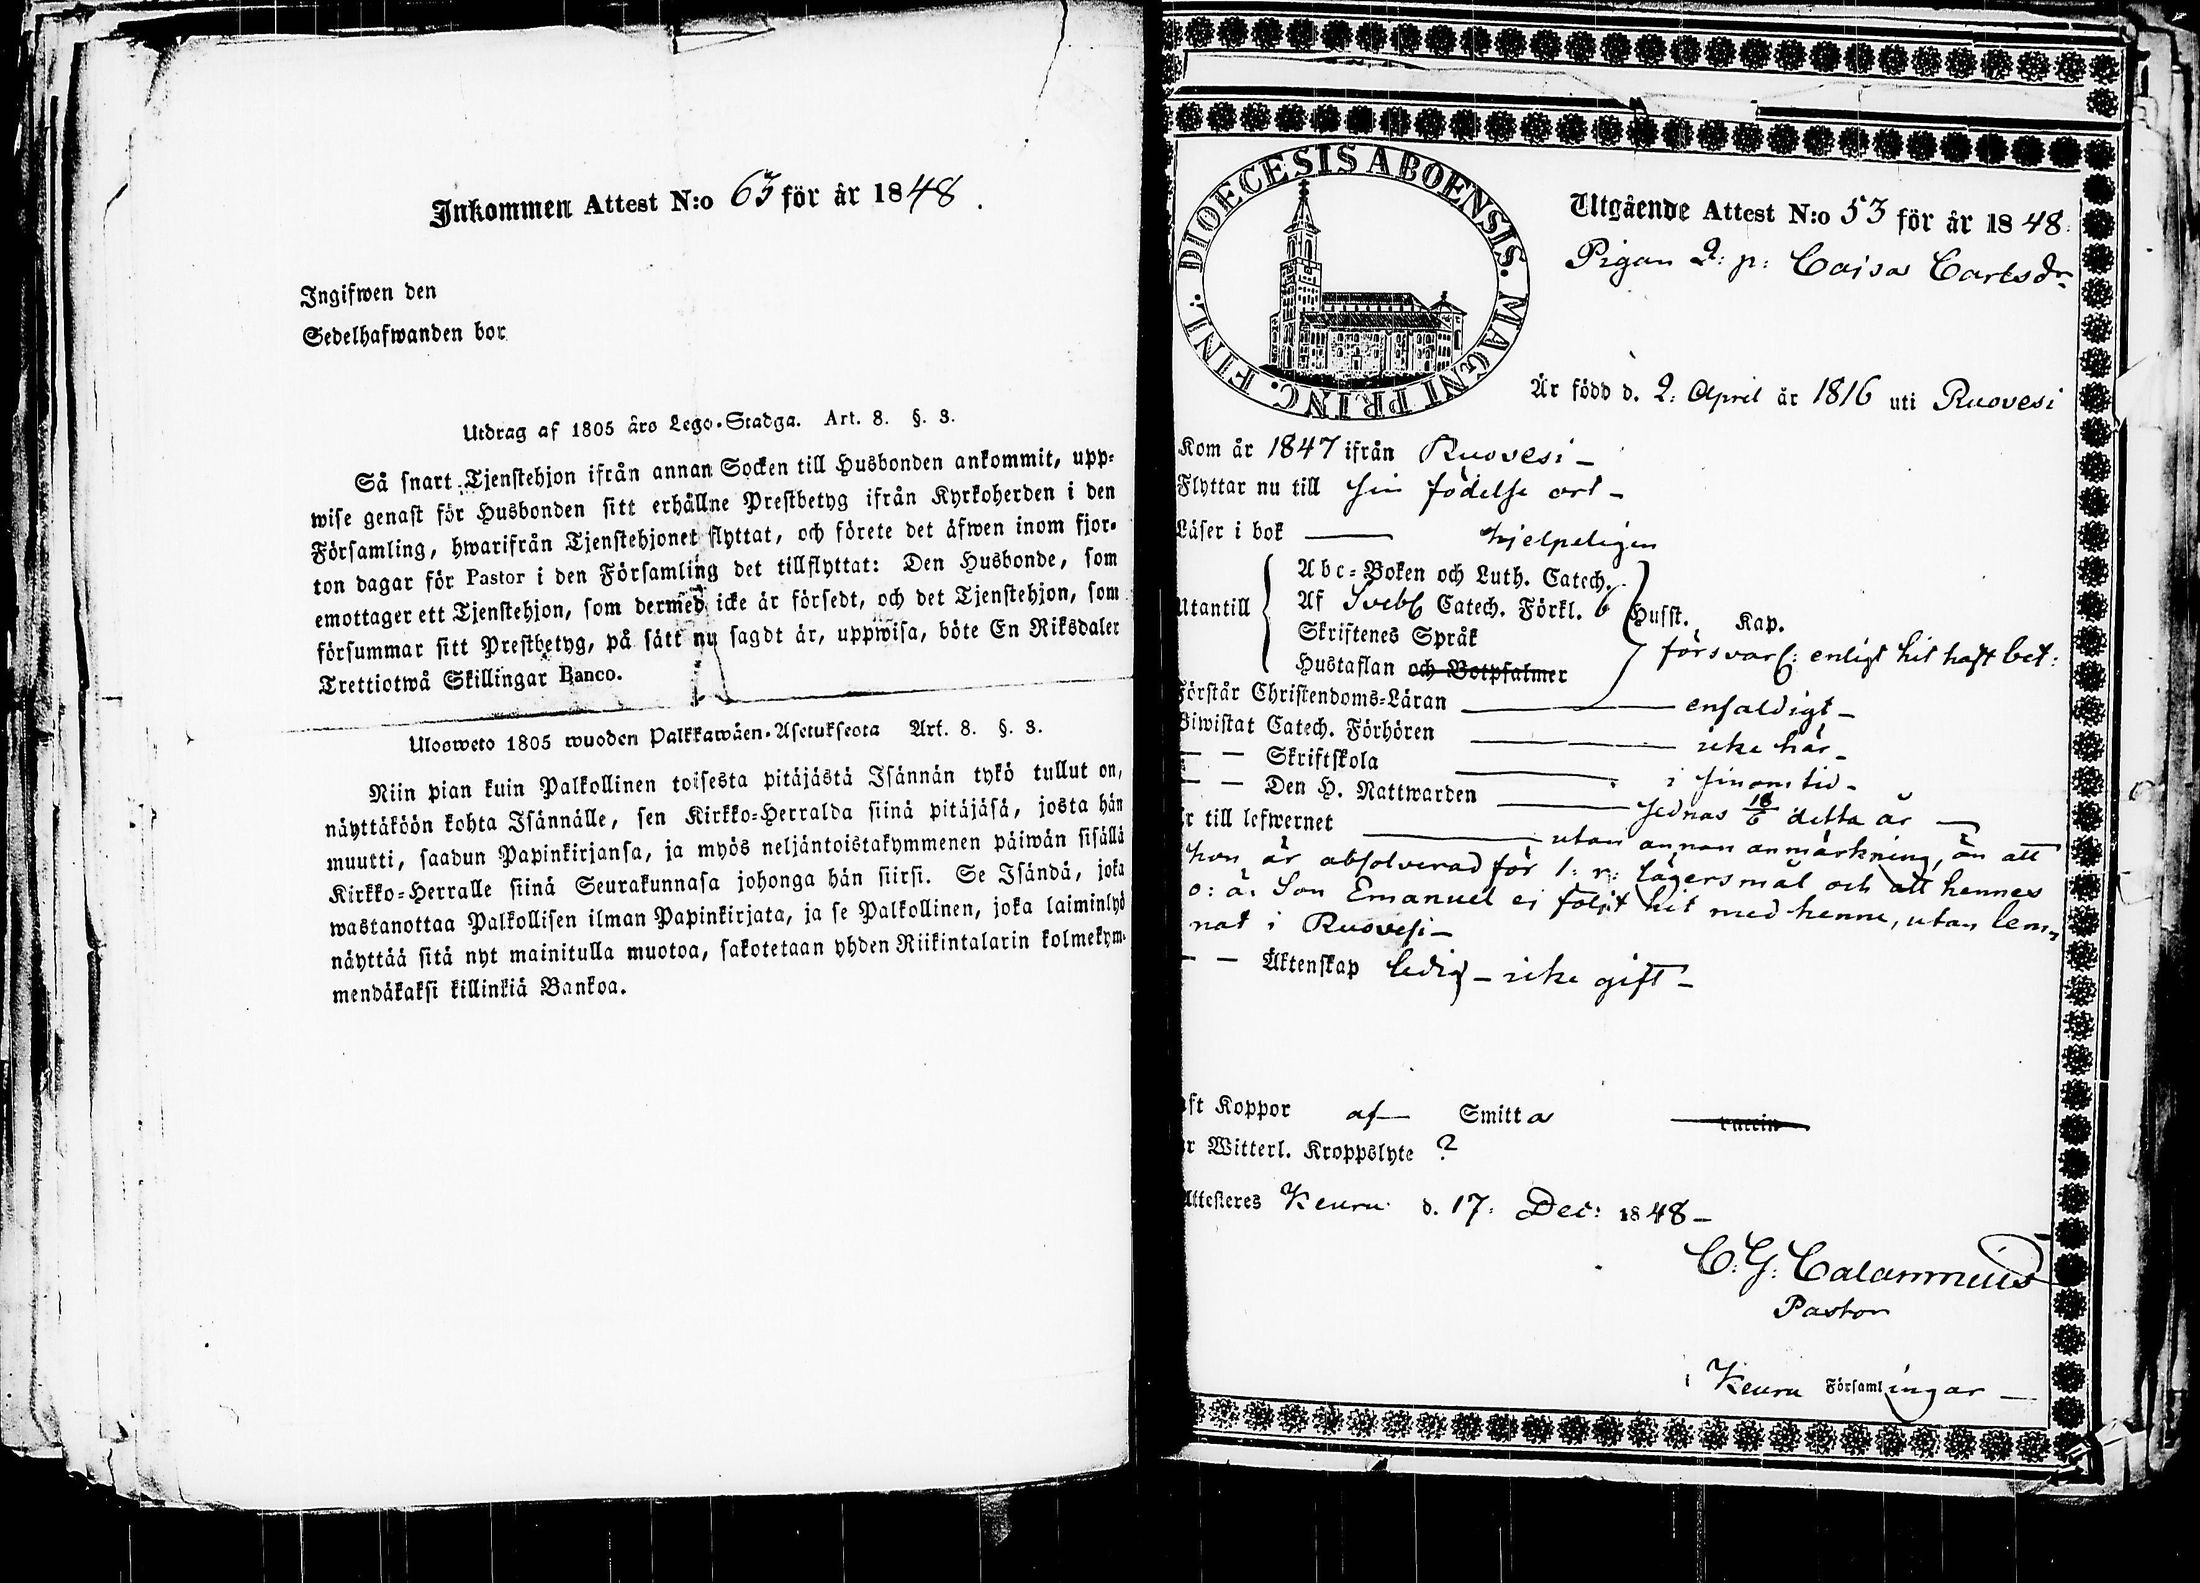 Inkommen Attest N:o 63 för år 1848.
Ingifwen den
Sedelhafwanden bor
Utdrag af 1805 års Lego-Stadga. Art. 8. §. 3.
Så snart Tjenstehjon ifrån annan Socken till Husbonden ankommit, upp-
wise genast för Husbonden sitt erhållne Prestbetyg ifrån Kyrkoherden i den
Församling, hwarifrån Tjenstehjonet flyttat, och förete det äfwen inom fjor-
ton dagar för Pastor i den Församling det tillflyttat: Den Husbonde, som
emottager ett Tjenstehjon, som dermed icke är försedt, och det Tjenstehjon, som
försummar sitt Prestbetyg, på sätt nu sagdt är, uppwisa, böte En Riksdaler
Trettiotwå Skillingar Banco.
Ulosweto 1805 wuoden Palkkawäen-Asetuksesta Art. 8. §. 3.
Niin pian kuin Palkollinen toisesta pitäjästä Isännän tykö tullut on,
näyttäköön kohta Isännälle, sen Kirkko-Herralda siinä pitäjäsä, josta hän
muutti, saadun Papinkirjansa, ja myös neljäntoistakymmenen päiwän sisällä
Kirkko-Herralle siinä Seurakunnasa johonga hän siirsi. Se Isändä, joka
wastanottaa Palkollisen ilman Papinkirjata, ja se Palkollinen, joka laiminlyö
näyttää sitä nyt mainitulla muotoa, sakotetaan yhden Riikintalarin kolmekym-
mendäkaksi killinkiä Bankoa.
DIOECESIS ABOENSIS. MAGNI PRINC. FINL.
Utgående Attest N:o 53 för år 1848.
Pigan Q: p: Caisa Carlsdr
Är född d. 2: April år 1816 uti Ruovesi
Kom år 1847 ifrån Ruovesi –
Flyttar nu till sin födelse ort –
Läser i bok — hjelpeligen
Abc-Boken och Luth. Catech.
Utantill Af Sveb. Catech. Förkl. 6 Husst. Kap.
Skriftenes Språk
försvarl: enligt hit haft bet:
Hustaflan och Botpsalmer
Förstår Christendoms-Läran — enfaldigt –
Biwistat Catech. Förhören — icke här –
– – Skriftskola — i sinom tid –
– – Den H. Nattwarden — sednas 18/6 detta år —
r till lefwernet — utan annan anmärkning, än att
hon är absolverad för 1: r: lägersmål och att hennes
o: ä: Son Emanuel ej följt hit med henne, utan lem-
nat i Ruovesi –
– – Äktenskap ledig – icke gift –
aft Koppor af Smitta vaccin
r Witterl. Kroppslyte ?
Attesteres Keuru d. 17: Dec: 1848 –
C. G. Calamnius
Pastor
i Keuru Församlingar —